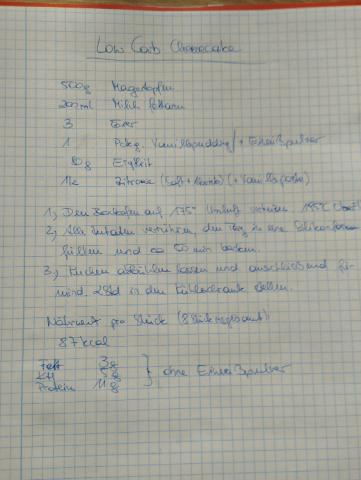 Low Carb Cheesecake
500g Magertopfen
200ml Milch fettarm
3 Eier
1 Pckg. Vanillepudding / + Eiweißpulver
80g Erythrit
1/2 Zitrone (Saft + Abrieb) (+ Vanillepaste)
1.) Den Backofen auf 175° Umluft
2.) Alle Zutaten verrühren, den Teig in eine Silikonform
füllen und ca 50 min backen.
3.) Kuchen abkühlen lassen und anschließend für
mind. 2 Std in den Kühlschrank stellen.
Nährwert pro Stück (8 Stück insgesamt):
87 kcal
Fett 3g
KH 5g
Protein 11g
ohne Eiweißpulver